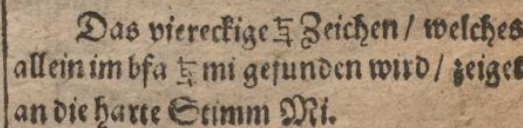 Das viereckige ♮ Zeichen / welches
allein im bfa ♮ mi gefunden wird / zeiget
an die harte Stimm Mi.